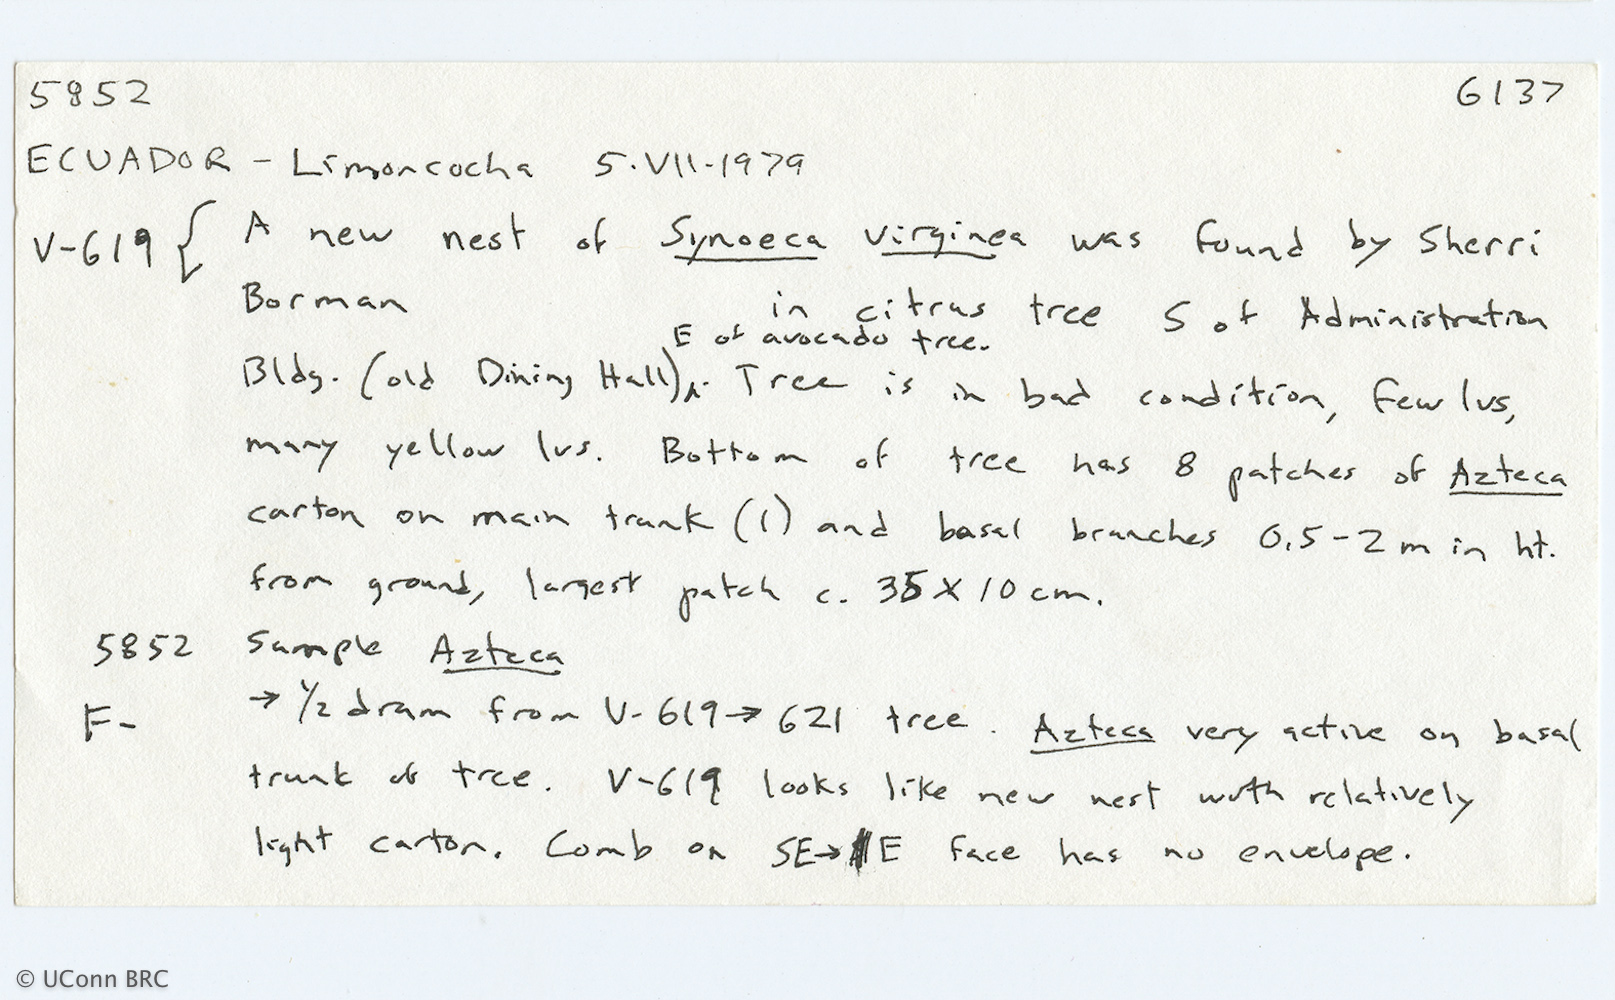 5852 6137
ECUADOR - Limoncocha 5-VII-1979
V-619 { A new nest of Synoeca virginea was found by Sherri
Borman in citrus tree S of Administration
E of avocado tree.
Bldg. (old Dining Hall)⁁. Tree is in bad condition, few lvs,
many yellow lvs. Bottom of tree has 8 patches of Azteca
carton on main trunk (1) and basal branches 0.5-2 m in ht.
from ground, largest patch c. 35 X 10 cm.
5852 Sample Azteca
F- → 1/2 dram from V-619 → 621 tree. Azteca very active on basal
trunk of tree. V-619 looks like new nest with relatively
light carton. Comb on SE→E face has no envelope.
© UConn BRC